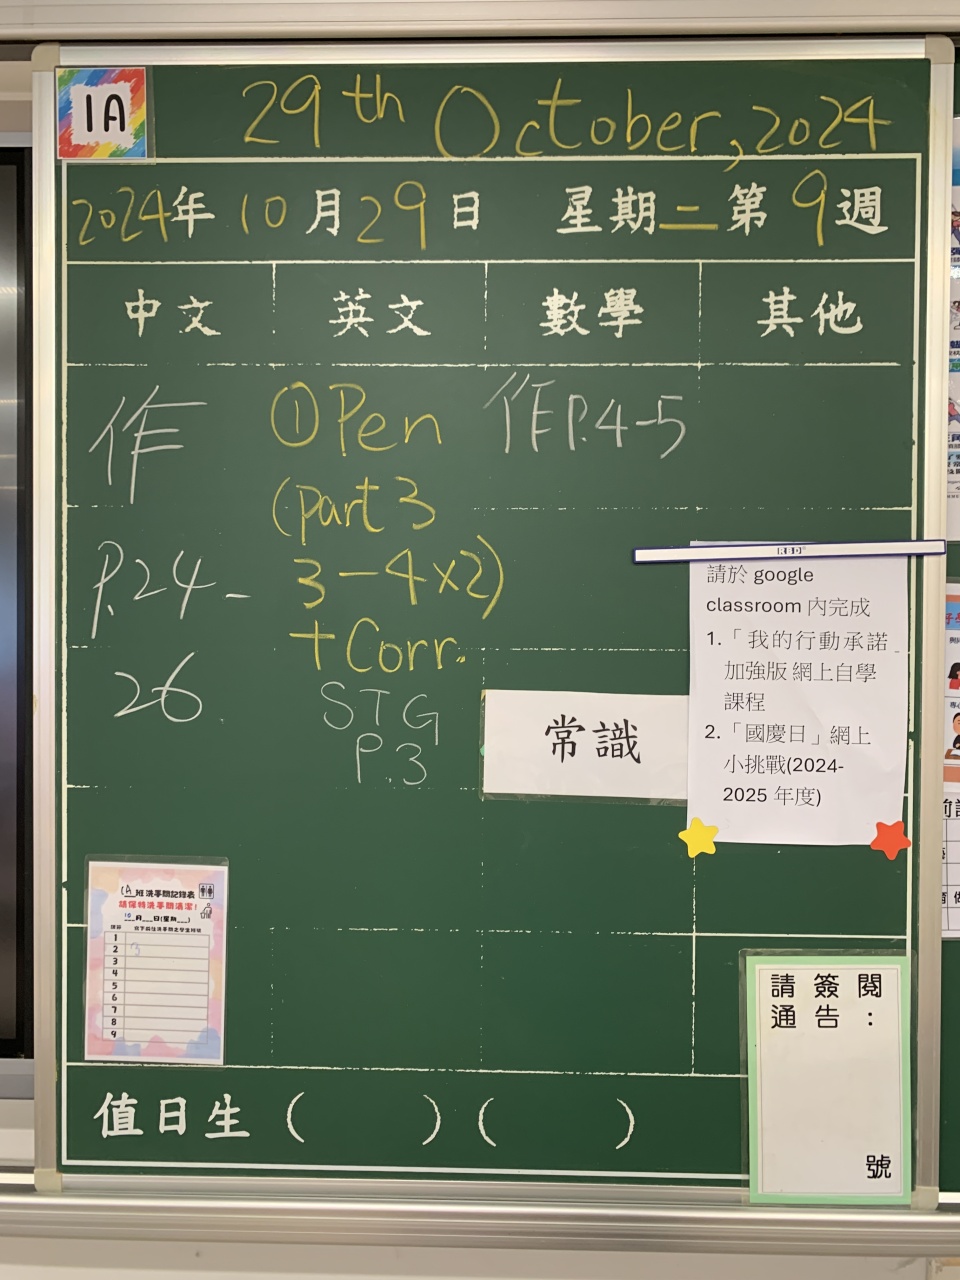 1A
29th October, 2024
2024年10月29日 星期二第9週
中文 英文 數學 其他
作
P.24-
26
①Pen
(part 3
3-4×2)
+Corr.
STG
P.3
作P.4-5
常識
請於 google
classroom 內完成
1.「我的行動承諾
加強版 網上自學
課程
2.「國慶日」網上
小挑戰(2024-
2025 年度)
1A班洗手間記錄表
請保持洗手間清潔!
10月__日(星期__)
1
2 3
3
4
5
6
7
8
9
請簽閱
通告:
號
值日生 ( ) ( )